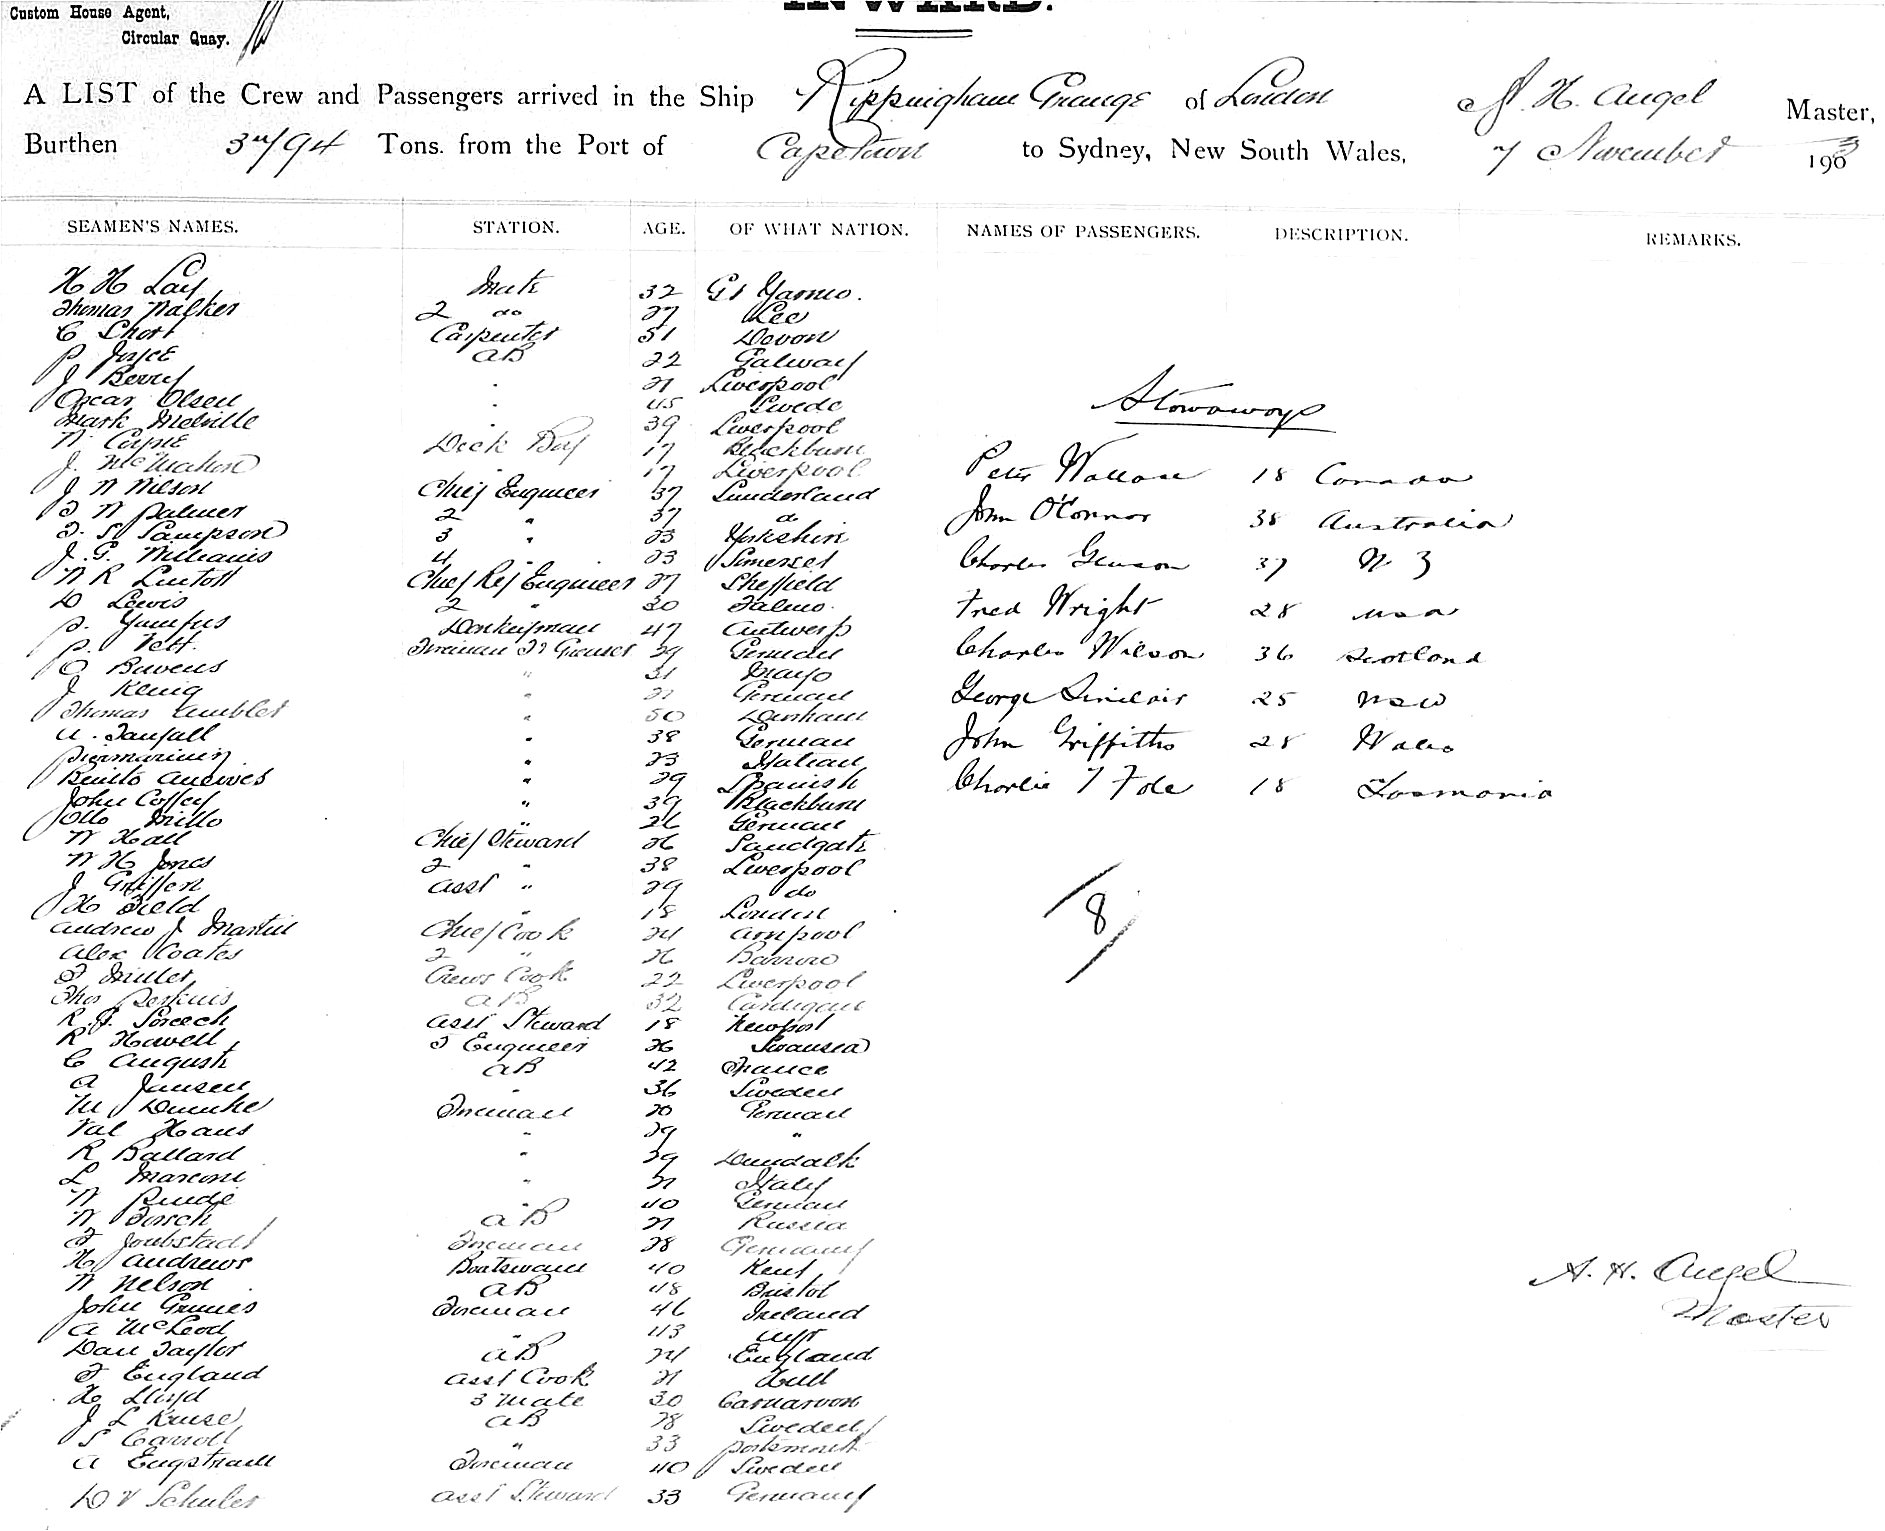 Custom House Agent,
Circular Quay.
INWARD.
A LIST of the Crew and Passengers arrived in the Ship Rippingham Grange of London A. H. Angel Master,
Burthen Tons. from the Port of Capetown to Sydney, New South Wales, 7 November 1903
SEAMEN'S NAMES. STATION. AGE. OF WHAT NATION. NAMES OF PASSENGERS. DESCRIPTION. REMARKS.
H H Lay Mate 32 Gt Yarmo.
Thomas Walker 2 do 27 Lee
C Short Carpenter 51 Devon
P Joyce AB 22 Galway
J Berry 21 Liverpool
Oscar Olsen 45 Swede
Mark Melville 39 Liverpool
W Coyne Deck Boy 17 Blackburn
J. McMahon 17 Liverpool
J W Wilson Chief Engineer 37 Sunderland
T W Palmer 2 " 37 do
T. S. Sampson 3 " 23 Yorkshire
J. G. Williams 4 23 Somerset
W R Lintott Chief Ref Engineer 27 Sheffield
D Lewis 2 " 20 Falmo.
P. Donkeyman 47 Antwerp
P. Fireman & Greaser 29 German
C Buvens " 31 Mayo
J King " German
Thomas Ambler " 50
A. " 38 German
" 23 Italian
Benito " 29 Spanish
John Coffey " 39 Blackburn
Otto " 26 German
W Hall Chief Steward 26 Sandgate
W H Jones 2 " 38 Liverpool
J Griffen Asst " 29 do
H Field " 18 London
Andrew J Martin Chief Cook 24
Alex Coates 2 " 26 Barrow
F Miller Crews Cook 22 Liverpool
Thos Perkins AB 32 Cardigan
R. J. Screech Asst Steward 18 Newport
R Howell Engineer 26 Swansea
C August AB 42 France
A Jansen " 36 Sweden
M Fireman 20 German
Val Haus " 29 "
R Ballard " 29 Dundalk
L Marconi " 21 Italy
W " 40 German
W AB 21 Russia
F Fireman 28 Germany
H Andrews Boatswain 40 Kent
W Nelson AB 48 Bristol
John Fireman 46 Ireland
A McLeod " 43
Dan Taylor AB 24 England
F England Asst Cook 21 Hull
H Lloyd 3 Mate 30 Carnarvon
J L Kruse AB 28 Sweden
S Carroll " 33 Portsmouth
A Fireman 40 Sweden
D V Schuler Asst Steward 33 Germany
Stowaways
Peter Wallace 18 Canada
John O'Connor 38 Australia
Charles Gleeson 37 N Z
Fred Wright 28 USA
Charles Wilson 36 Scotland
George Sinclair 25 NSW
John Griffiths 28 Wales
Charlie T Fole 18 Tasmania
/8/
A. H. Angel
Master